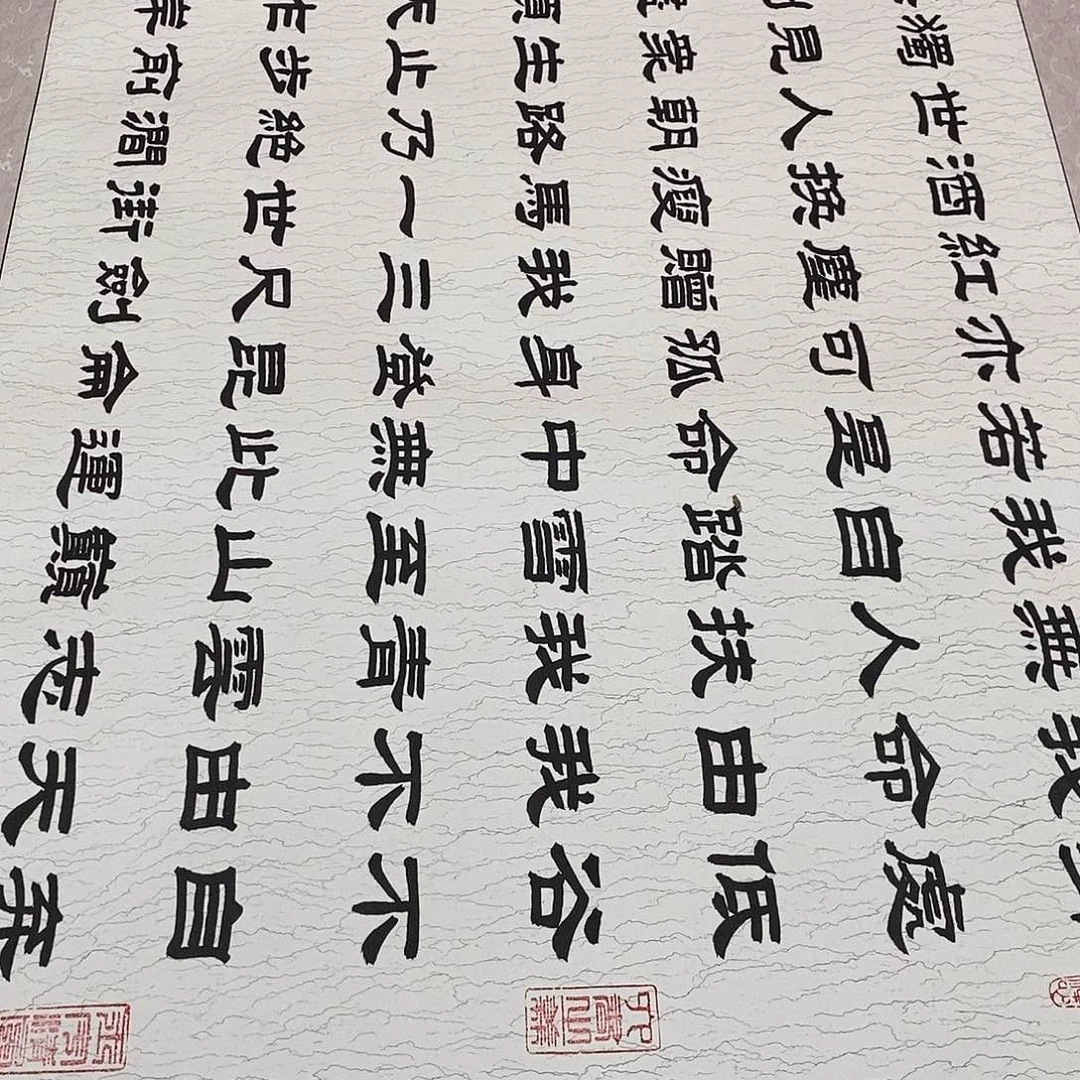 獨世酒紅亦若我無我
見人換塵可是自人命處
業朝瘦贈孤命踏扶由低
生路馬我身中雪我我谷
天止乃一三登無至青不不
步絕世尺昆此山雲由自
前澗街劍侖運巔志天棄